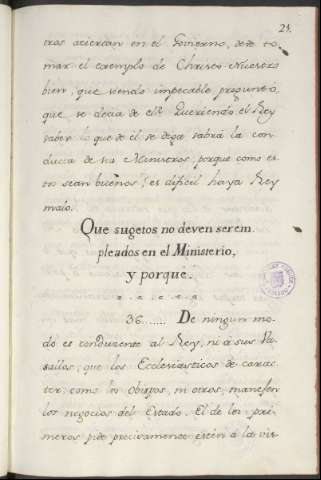 21.
tros aciertan en el Govierno, deve to-
mar el exemplo de Christo Nuestro
bien, que siendo impecable preguntó,
que se decia de el? Queriendo el Rey
saber lo que de el se dega sabrá la con-
ducta de sus Ministros porque como es-
tos sean buenos, es dificil haya Rey
malo.
Que sugetos no deven ser em
pleados en el Ministerio,
y porque.
36...... De ningun mo-
do es conducente al Rey, ni á sus Va-
sallos, que los Ecclesiasticos de carac-
ter como los Obispos, ni otros, manejen
los negocios del Estado. El de los pri-
meros pide precisamente estén á la vis-